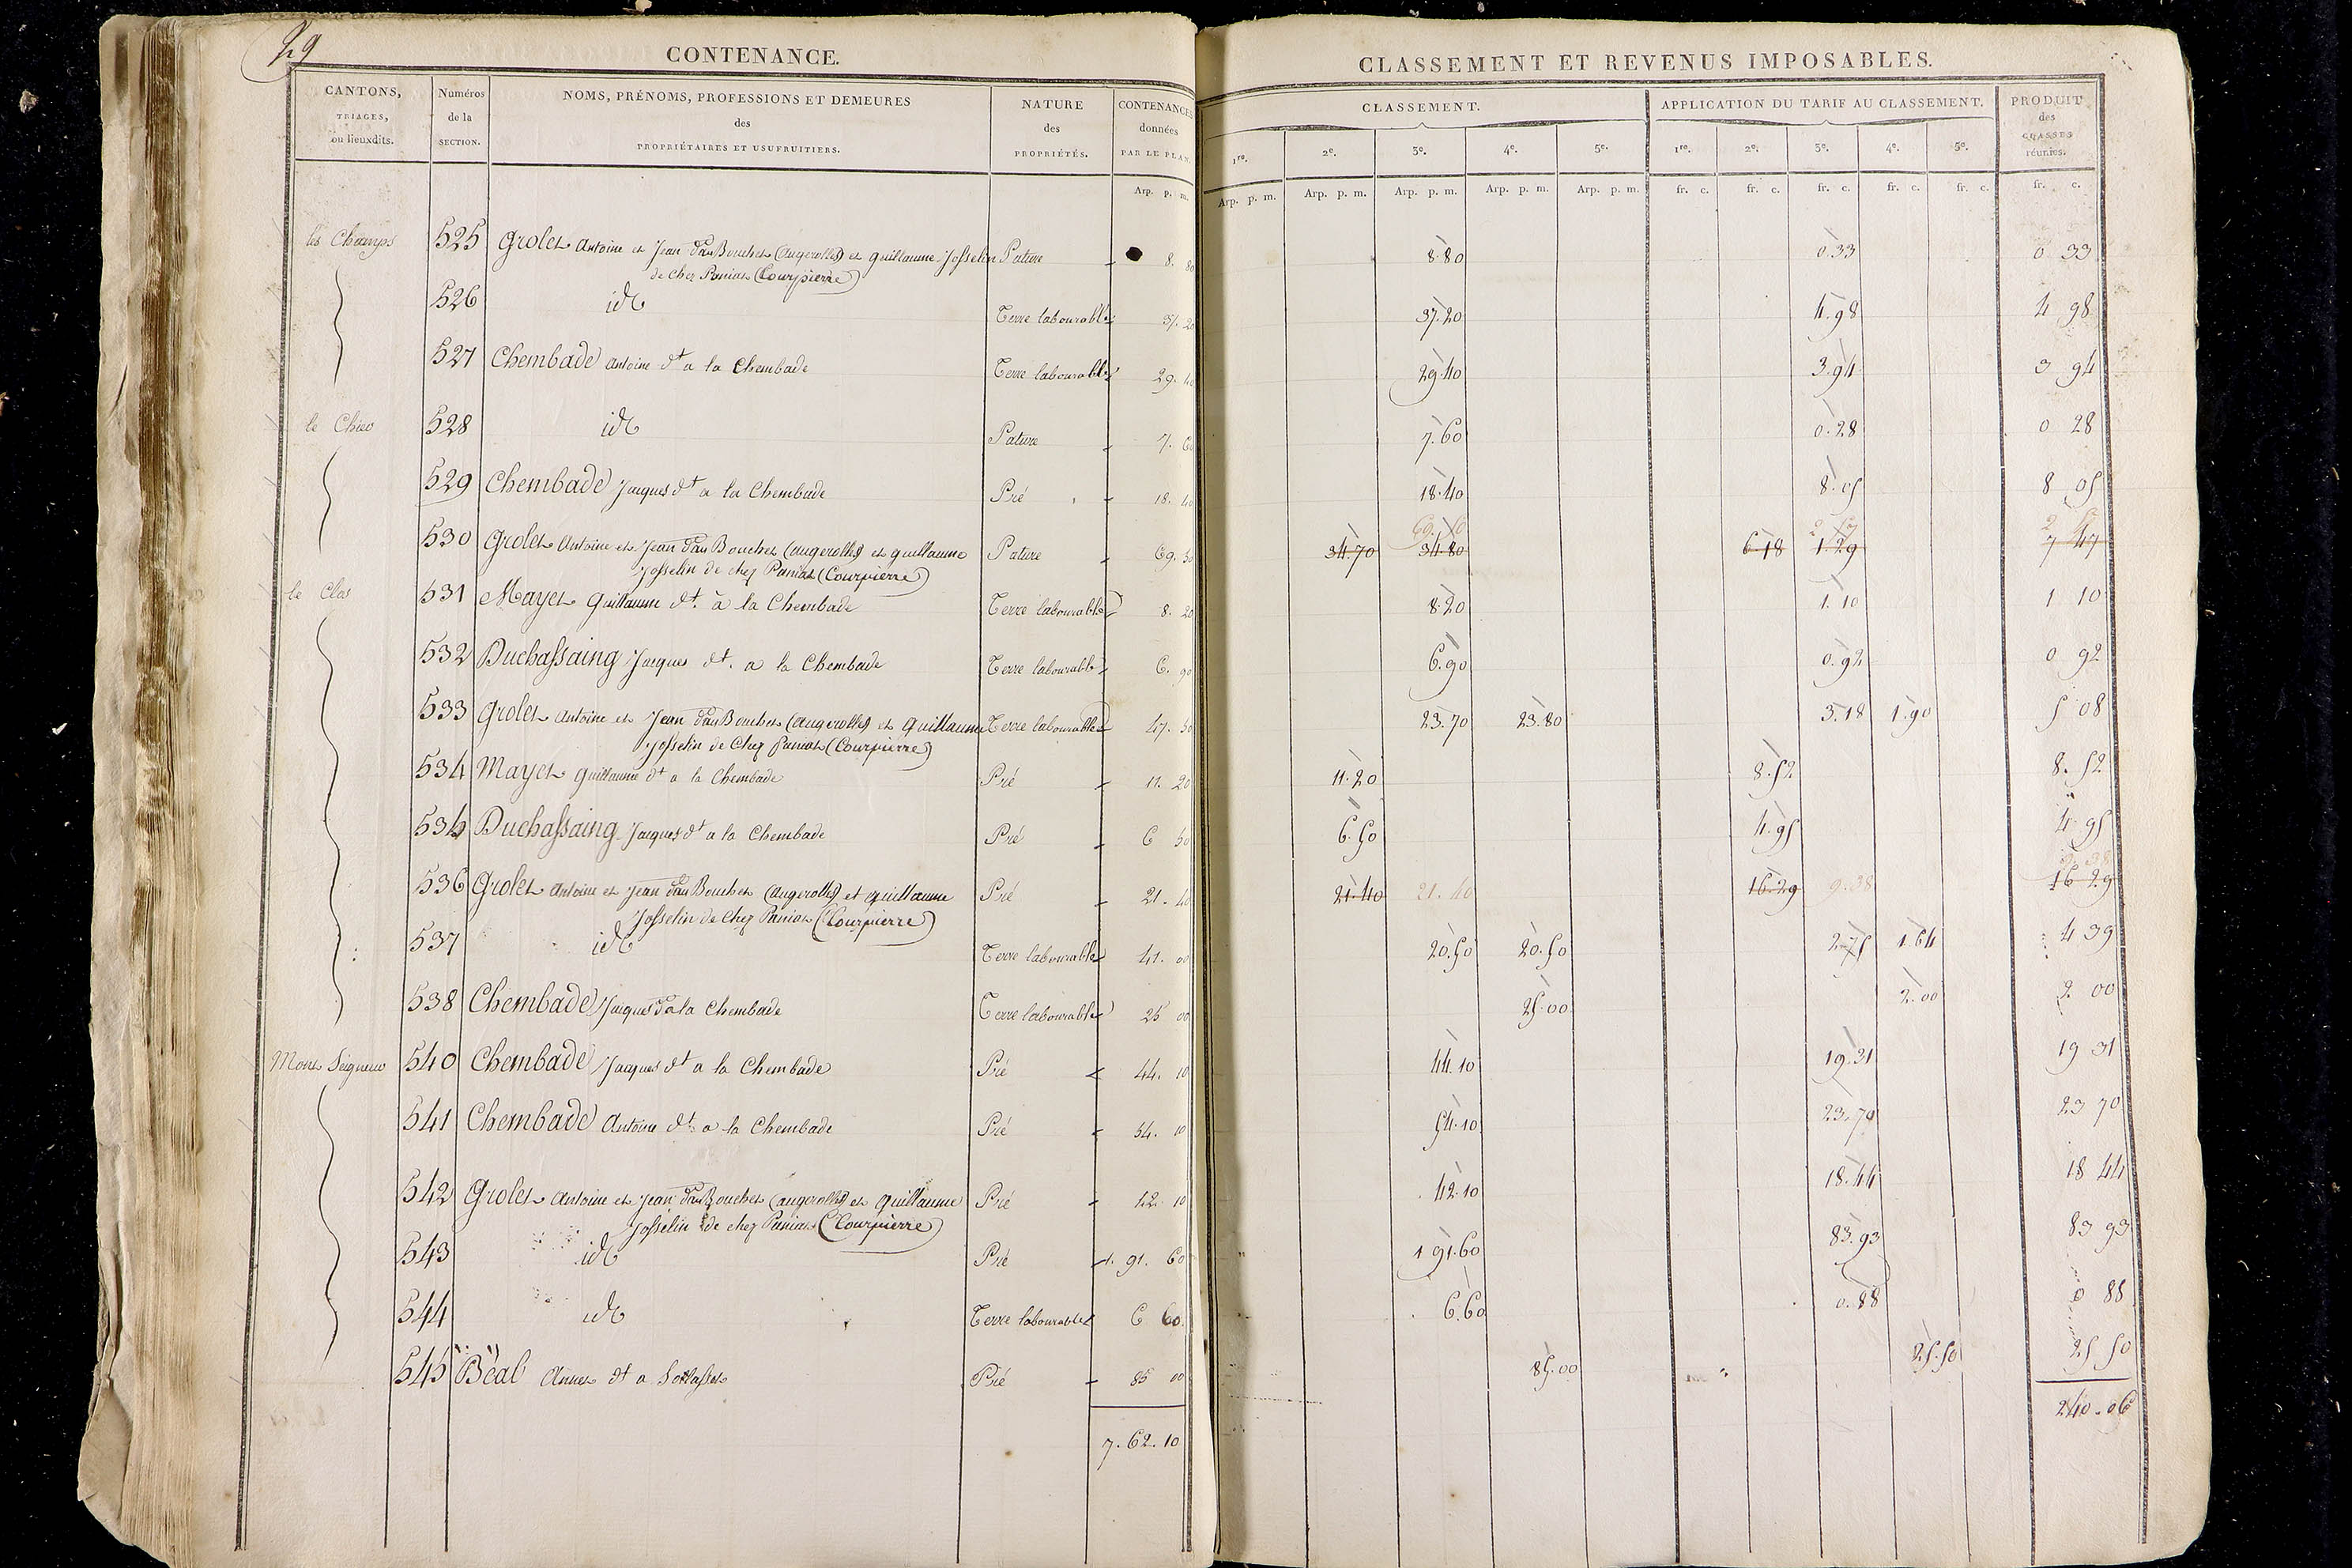 29
CONTENANCE.
CANTONS, TRIAGES, ou lieuxdits. Numéros de la SECTION. NOMS, PRÉNOMS, PROFESSIONS ET DEMEURES des PROPRIÉTAIRES ET USUFRUITIERS. NATURE des PROPRIÉTÉS. CONTENANCES données PAR LE PLAN.
Arp. p. m.
les Champs 525 Grolet Antoine et Jean Bouchet (augerolles) et guillaume Josselin Pature 8. 80
de chez Paniat (Courpierre)
526 id Terre labourable 37. 20
527 Chembade Antoine dt a la Chembade Terre labourable 29. 40
528 id Pature 7. 60
529 Chembade Jacques dt a la Chembade Pré 18. 40
530 Grolet Antoine et Jean Bouchet (augerolles) et guillaume Pature 69. 50
Josselin de chez Paniat (Courpierre)
le Clos 531 Mayet Guillaume dt. à la Chembade Terre labourable 8. 20
532 Duchassaing Jacques dt. a la Chembade Terre labourable 6. 90
533 Grolet Antoine et Jean Bouchet (augerolles) et Guillaume Terre labourable 47. 50
Josselin de Chez Paniat (Courpierre)
534 Mayet Guillaume dt a la Chembade Pré 11. 20
535 Duchassaing Jacques dt a la Chembade Pré 6 50
536 Grolet Antoine et Jean Bouchet (Augerolles) et guillaume Pré 21. 40
Josselin de Chez Paniat (Courpierre)
537 id Terre labourable 41. 00
538 Chembade Jacques dt a la Chembade Terre labourable 25 00
540 Chembade Jacques dt a la Chembade Pré 44. 10
541 Chembade Antoine dt. a la Chembade Pré 54. 10
542 Grolet Antoine et Jean Bouchet (augerolles) et Guillaume Pré 42. 10
Josselin de chez Paniat (Courpierre)
543 id Pré 1. 91. 60
544 id Terre labourable 6 60.
545 Béal dt a Pré 85 00
7. 62. 10
CLASSEMENT ET REVENUS IMPOSABLES.
CLASSEMENT. APPLICATION DU TARIF AU CLASSEMENT. PRODUIT des CLASSES réunies.
1re. 2e. 3e. 4e. 5e. 1re. 2e. 3e. 4e. 5e.
Arp. p. m. Arp. p. m. Arp. p. m. Arp. p. m. Arp. p. m. fr. c. fr. c. fr. c. fr. c. fr. c. fr. c.
8.80 0.33 0 33
37.20 4.98 4 98
29.40 3.94 3 94
7.60 0.28 0 28
18.40 8.05 8 05
34.70 34.80 6.18 1.29 7 47
8.20 1.10 1 10
6.90 0.92 0 92
23.70 23.80 3.18 1.90 5 08
11.20 8.52 8. 52
6.50 4.95 4 95
21.40 21.40 16.29 9.38 16 29
20.50 20.50 2.75 1.64 4 39
25.00 2.00 2 00
44.10 19.31 19 31
54.10 23.70 23 70
42.10 18.44 18 44
1 91.60 83.93 83 93
6.60 0.88 0 88
85.00 25.50 25 50
240.06